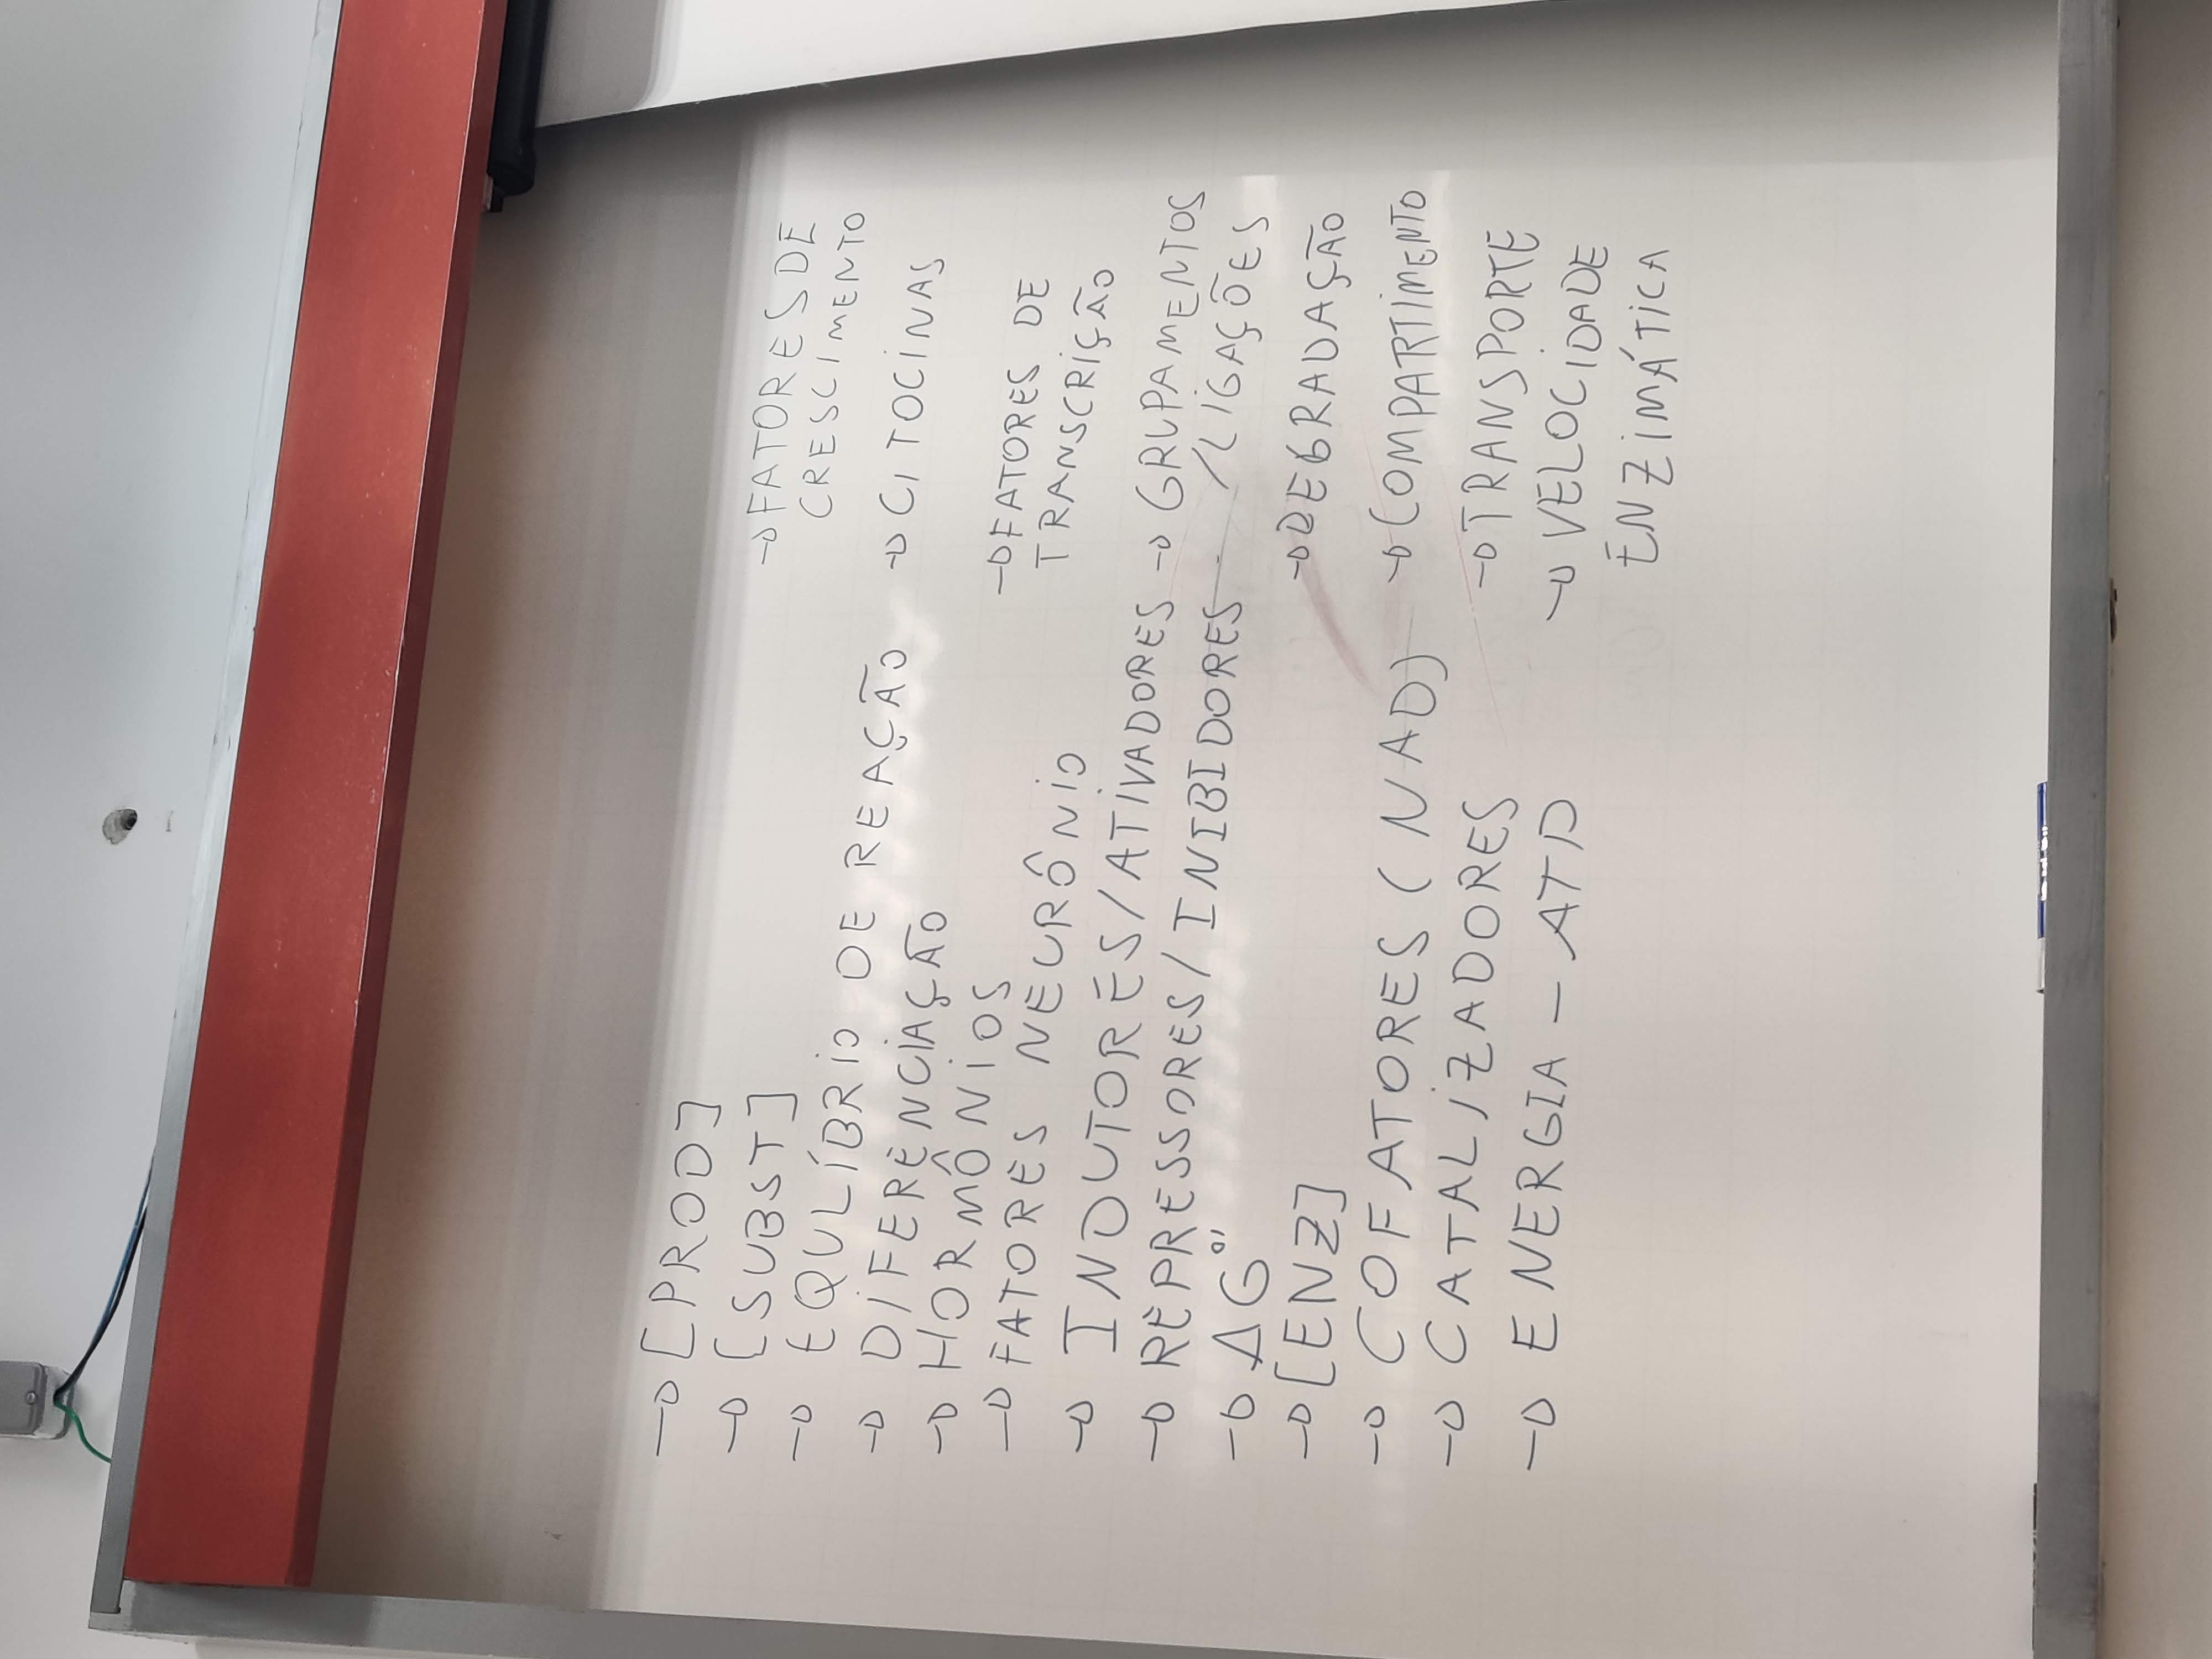 → [PROD]
→ [SUBST]
→ EQULÍBRIO DE REAÇÃO
→ DIFERENCIAÇÃO
→ HORMÔNIOS
→ FATORES NEURÔNIO
→ INDUTORES/ATIVADORES
→ REPRESSORES/INIBIDORES
→ ΔG°'
→ [ENZ]
→ COFATORES (NAD)
→ CATALIZADORES
→ ENERGIA - ATP
→ FATORES DE
CRESCIMENTO
→ CITOCINAS
→ FATORES DE
TRANSCRIÇÃO
→ GRUPAMENTOS
/LIGAÇÕES
→ DEGRADAÇÃO
→ COMPARTIMENTO
→ TRANSPORTE
→ VELOCIDADE
ENZIMÁTICA